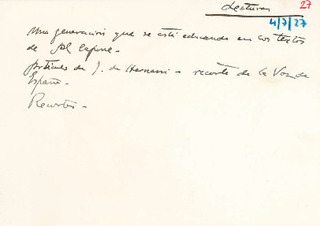 Lecturas
27
4/7/27
Una generación que se está educando en los textos
de Al Capone.
Artículo de J. de Hernani - recorte de La Voz de
España.
Recortes.